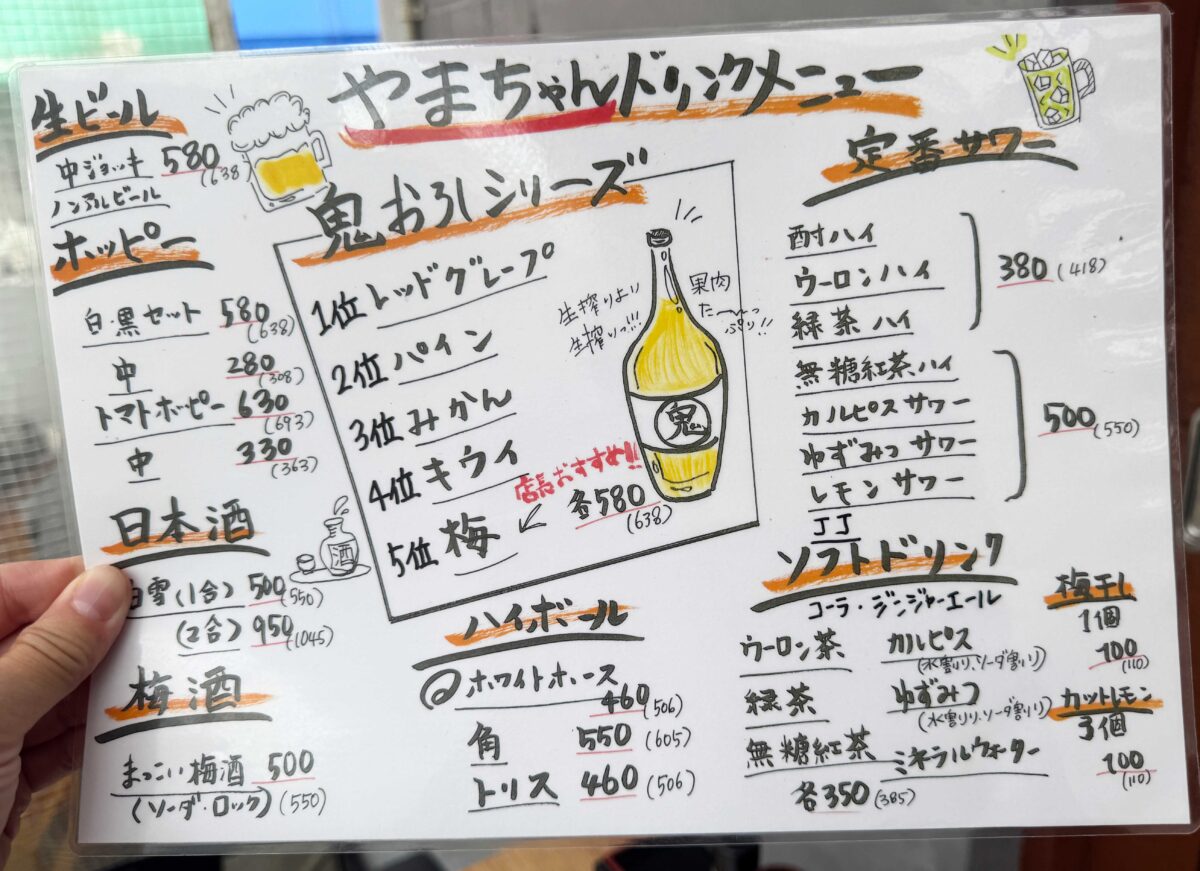 やまちゃんドリンクメニュー
生ビール
中ジョッキ 580
(638
ノンアルビール
ホッピー
白・黒セット 580
(638)
中 280
(308)
トマトホッピー 630
(693)
中 330
(363)
日本酒
白雪(1合) 500(550)
(2合) 950(1045)
酒
梅酒
まっこい梅酒 500
(ソーダ・ロック)(550)
鬼おろしシリーズ
1位 レッドグレープ
2位 パイン
3位 みかん
4位 キウイ
5位 梅
店長おすすめ!!
各580
(638)
生搾りより
生搾りっ!!!
果肉
た〜〜っ
ぷり!!
鬼
ハイボール
ホワイトホース
460(506)
角 550(605)
トリス 460(506)
定番サワー
酎ハイ
ウーロンハイ
緑茶ハイ
380(418)
無糖紅茶ハイ
カルピスサワー
ゆずみつサワー
レモンサワー
500(550)
JJ
ソフトドリンク
コーラ・ジンジャーエール
ウーロン茶 カルピス
(水割り、ソーダ割り)
緑茶 ゆずみつ
(水割り、ソーダ割り)
無糖紅茶 ミネラルウォーター
各350(385)
梅干し
1個
100
(110)
カットレモン
3個
100
(110)